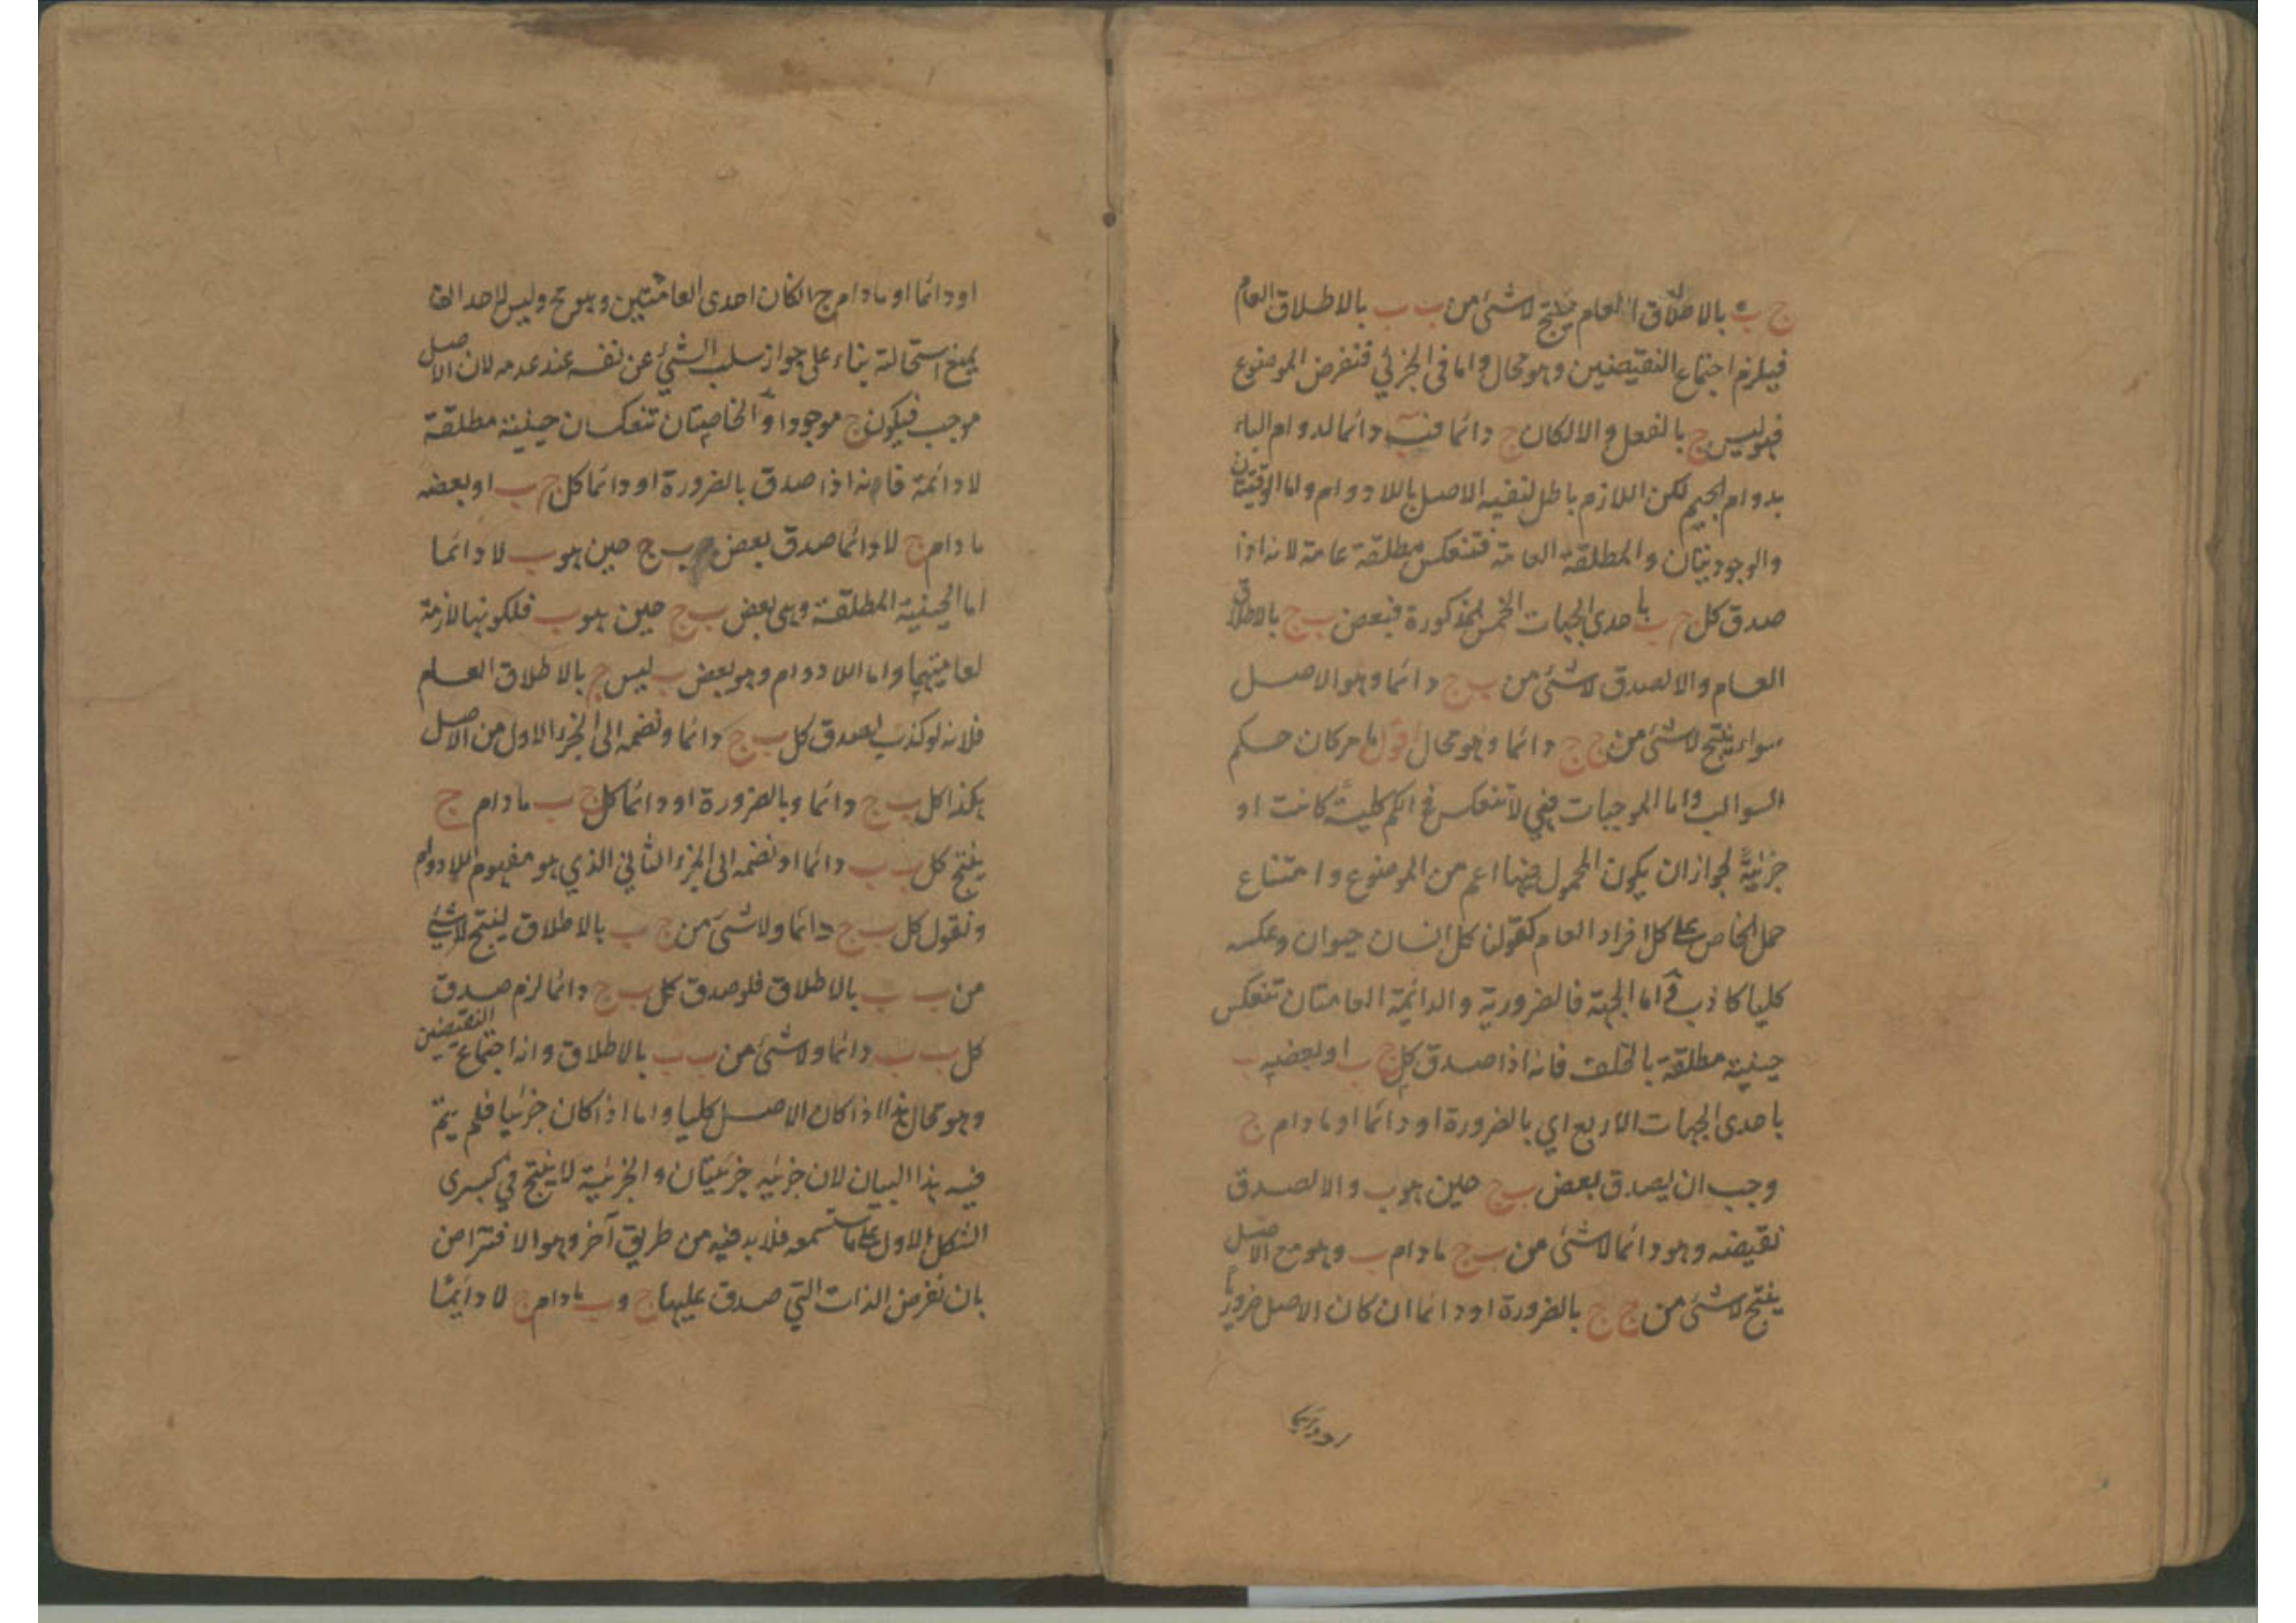 ج ب بالاطلاق العام ينتج لاشئ من ب ب بالاطلاق العام
فيلزم اجتماع النقيضين وهو محال واما فى الجزئي فنفرض الموضوع
فهو ليس ج بالفعل والا لكان ج دائما فب دائما لدوام الباء
بدوام الجيم لكن اللازم باطل لنفيه الاصل باللادوام واما الوقتيتان
والوجوديتان والمطلقة العامة فتنعكس مطلقة عامة لانه اذا
صدق كل ج ب باحدى الجهات الخمس المذكورة فبعض ب ج بالاطلاق
العام والا لصدق لاشئ من ب ج دائما وهو الاصل
سواء ينتج لاشئ من ج ج دائما وهو محال اقول ما مر كان حكم
السوالب واما الموجبات فهي لا تنعكس في الكم كلية كانت او
جزئية لجواز ان يكون المحمول فيها اعم من الموضوع وامتناع
حمل الخاص على كل افراد العام كقولنا كل انسان حيوان وعكسه
كليا كاذب واما الجهة فالضرورية والدائمة العامتان تنعكس
حينية مطلقة بالخلف فانه اذا صدق كل ج ب او بعضه ب
باحدى الجهات الاربع اي بالضرورة او دائما او مادام ج
وجب ان يصدق بعض ب ج حين هو ب والا لصدق
نقيضه وهو دائما لاشئ من ب ج مادام ب وهو مع الاصل
ينتج لاشئ من ج ج بالضرورة او دائما ان كان الاصل ضروريا
او دائما
او دائما او مادام ج ان كان احدى العامتين وهو مح وليس لاحد ان
يمنع استحالته بناء على جواز سلب الشئ عن نفسه عند عدمه لان الاصل
موجب فيكون ج موجودا والخاصتان تنعكسان حينية مطلقة
لادائمة فانه اذا صدق بالضرورة او دائما كل ج ب او بعضه
مادام ج لا دائما صدق بعض ب ج حين هو ب لا دائما
اما الحينية المطلقة وهي بعض ب ج حين هو ب فلكونها لازمة
لعاميتهما واما اللادوام وهو بعض ب ليس ج بالاطلاق العام
فلانه لو كذب لصدق كل ب ج دائما ونضمه الى الجزء الاول من الاصل
هكذا كل ب ج دائما وبالضرورة او دائما كل ج ب مادام ج
ينتج كل ب ب دائما او نضمه الى الجزء الثاني الذي هو مفهوم اللادوام
ونقول كل ب ج دائما ولاشئ من ج ب بالاطلاق لينتج لاشئ
من ب ب بالاطلاق فلو صدق كل ب ج دائما لزم صدق
كل ب ب دائما ولاشئ من ب ب بالاطلاق وانه اجتماع النقيضين
وهو محال هذا اذا كان الاصل كليا واما اذا كان جزئيا فلم يتم
فيه هذا البيان لان جزئيه جزئيتان والجزئية لا ينتج في كبرى
الشكل الاول على ما ستسمعه فلا بد فيه من طريق آخر وهو الافتراض
بان نفرض الذات التي صدق عليها ج وب مادام ج لا دائما